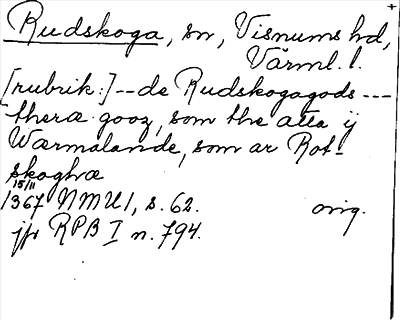 Rudskoga, sn, Visnums hd,
Värml. l.
[rubrik:] -- de Rudskogagods ---
theræ gooz, som the atta ij
Wærmalande, som ar Rot-
skoghæ
15/11
1367 NMU 1, s. 62. orig.
jfr RPB I n. 794.